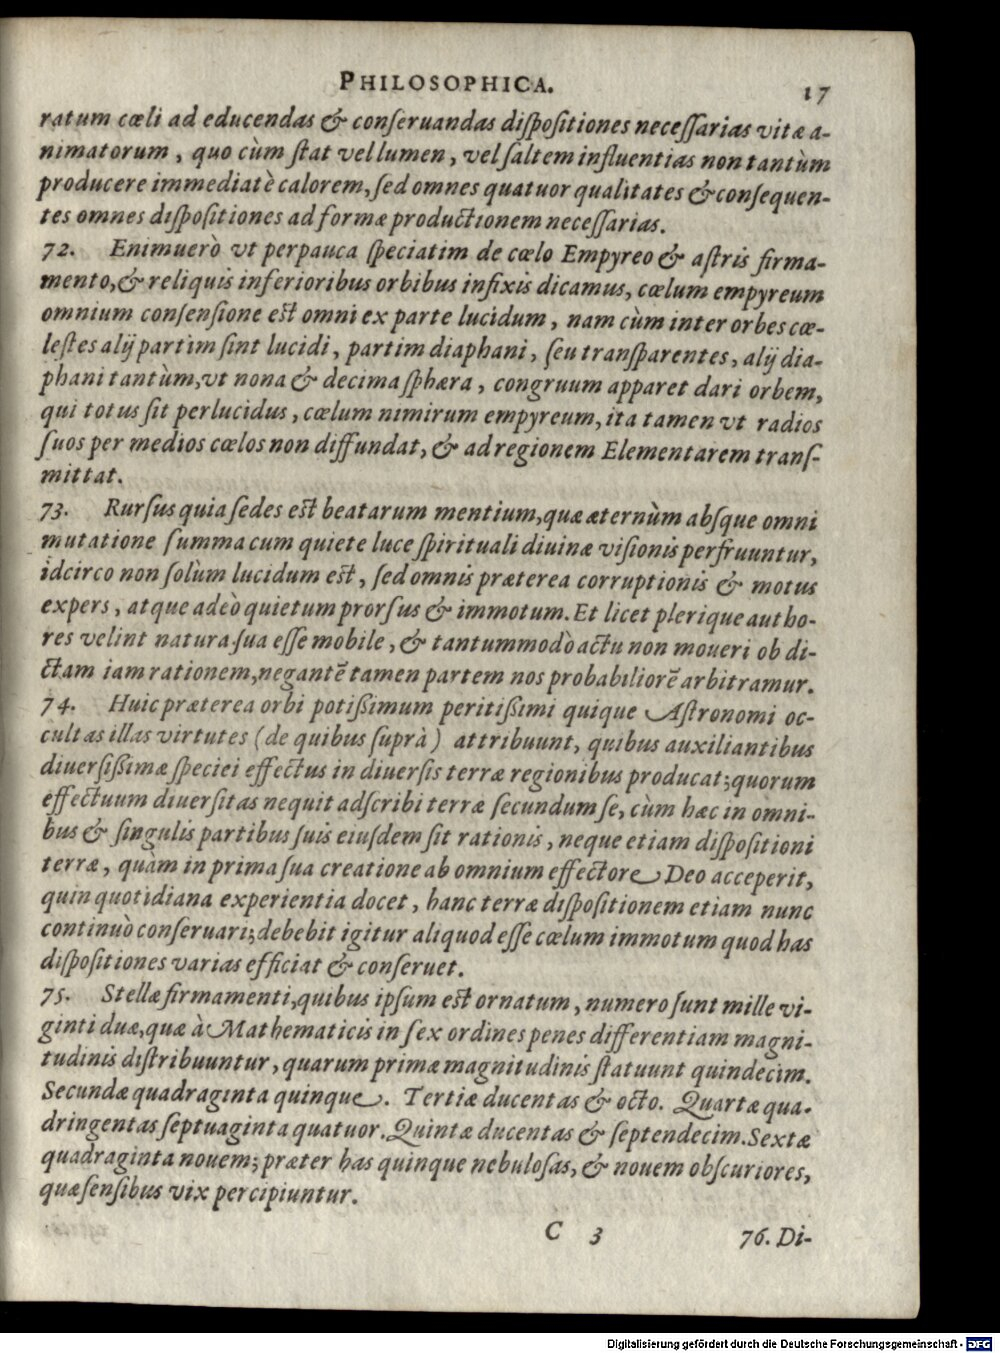 PHILOSOPHICA. 17
ratum cœli ad educendas & conſeruandas diſpoſitiones neceſſarias vitæ a-
nimatorum, quo cùm ſtat vel lumen, vel ſaltem influentias non tantùm
producere immediatè calorem, ſed omnes quatuor qualitates & conſequen-
tes omnes diſpoſitiones ad formæ productionem neceſſarias.
72. Enimuerò vt perpauca ſpeciatim de cœlo Empyreo & aſtris firma-
mento, & reliquis inferioribus orbibus infixis dicamus, cœlum empyreum
omnium conſenſione eſt omni ex parte lucidum, nam cùm inter orbes cœ-
leſtes alij partim ſint lucidi, partim diaphani, ſeu tranſparentes, alij dia-
phani tantùm, vt nona & decima ſphæra, congruum apparet dari orbem,
qui totus ſit perlucidus, cœlum nimirum empyreum, ita tamen vt radios
ſuos per medios cœlos non diffundat, & ad regionem Elementarem tranſ-
mittat.
73. Rurſus quia ſedes eſt beatarum mentium, quæ æternùm abſque omni
mutatione ſumma cum quiete luce ſpirituali diuinæ viſionis perfruuntur,
idcirco non ſolùm lucidum eſt, ſed omnis præterea corruptionis & motus
expers, atque adeò quietum prorſus & immotum. Et licet plerique autho-
res velint natura ſua eſſe mobile, & tantummodò actu non moueri ob di-
ctam iam rationem, negantē tamen partem nos probabiliorē arbitramur.
74. Huic præterea orbi potißimum peritißimi quique Aſtronomi oc-
cultas illas virtutes (de quibus ſuprà) attribuunt, quibus auxiliantibus
diuerſißimæ ſpeciei effectus in diuerſis terræ regionibus producat; quorum
effectuum diuerſitas nequit adſcribi terræ ſecundum ſe, cùm hæc in omni-
bus & ſingulis partibus ſuis eiuſdem ſit rationis, neque etiam diſpoſitioni
terræ, quàm in prima ſua creatione ab omnium effectore Deo acceperit,
quin quotidiana experientia docet, hanc terræ diſpoſitionem etiam nunc
continuò conſeruari; debebit igitur aliquod eſſe cœlum immotum quod has
diſpoſitiones varias efficiat & conſeruet.
75. Stellæ firmamenti, quibus ipſum eſt ornatum, numero ſunt mille vi-
ginti duæ, quæ à Mathematicis in ſex ordines penes differentiam magni-
tudinis diſtribuuntur, quarum primæ magnitudinis ſtatuunt quindecim.
Secundæ quadraginta quinque. Tertiæ ducentas & octo. Quartæ qua-
dringentas ſeptuaginta quatuor. Quintæ ducentas & ſeptendecim. Sextæ
quadraginta nouem; præter has quinque nebuloſas, & nouem obſcuriores,
quæ ſenſibus vix percipiuntur.
C 3 76. Di-
Digitalisierung gefördert durch die Deutsche Forschungsgemeinschaft - DFG